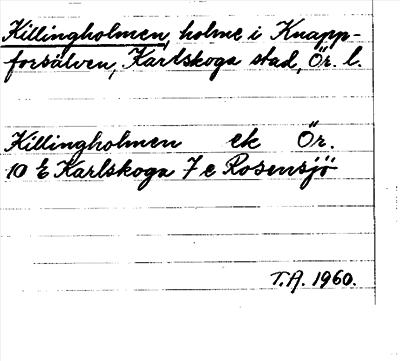 Killingholmen, holme i Knapp-
forsälven, Karlskoga stad, Ör. l.
Killingholmen ek Ör.
10 E Karlskoga 7 e Rosensjö
T.A. 1960.